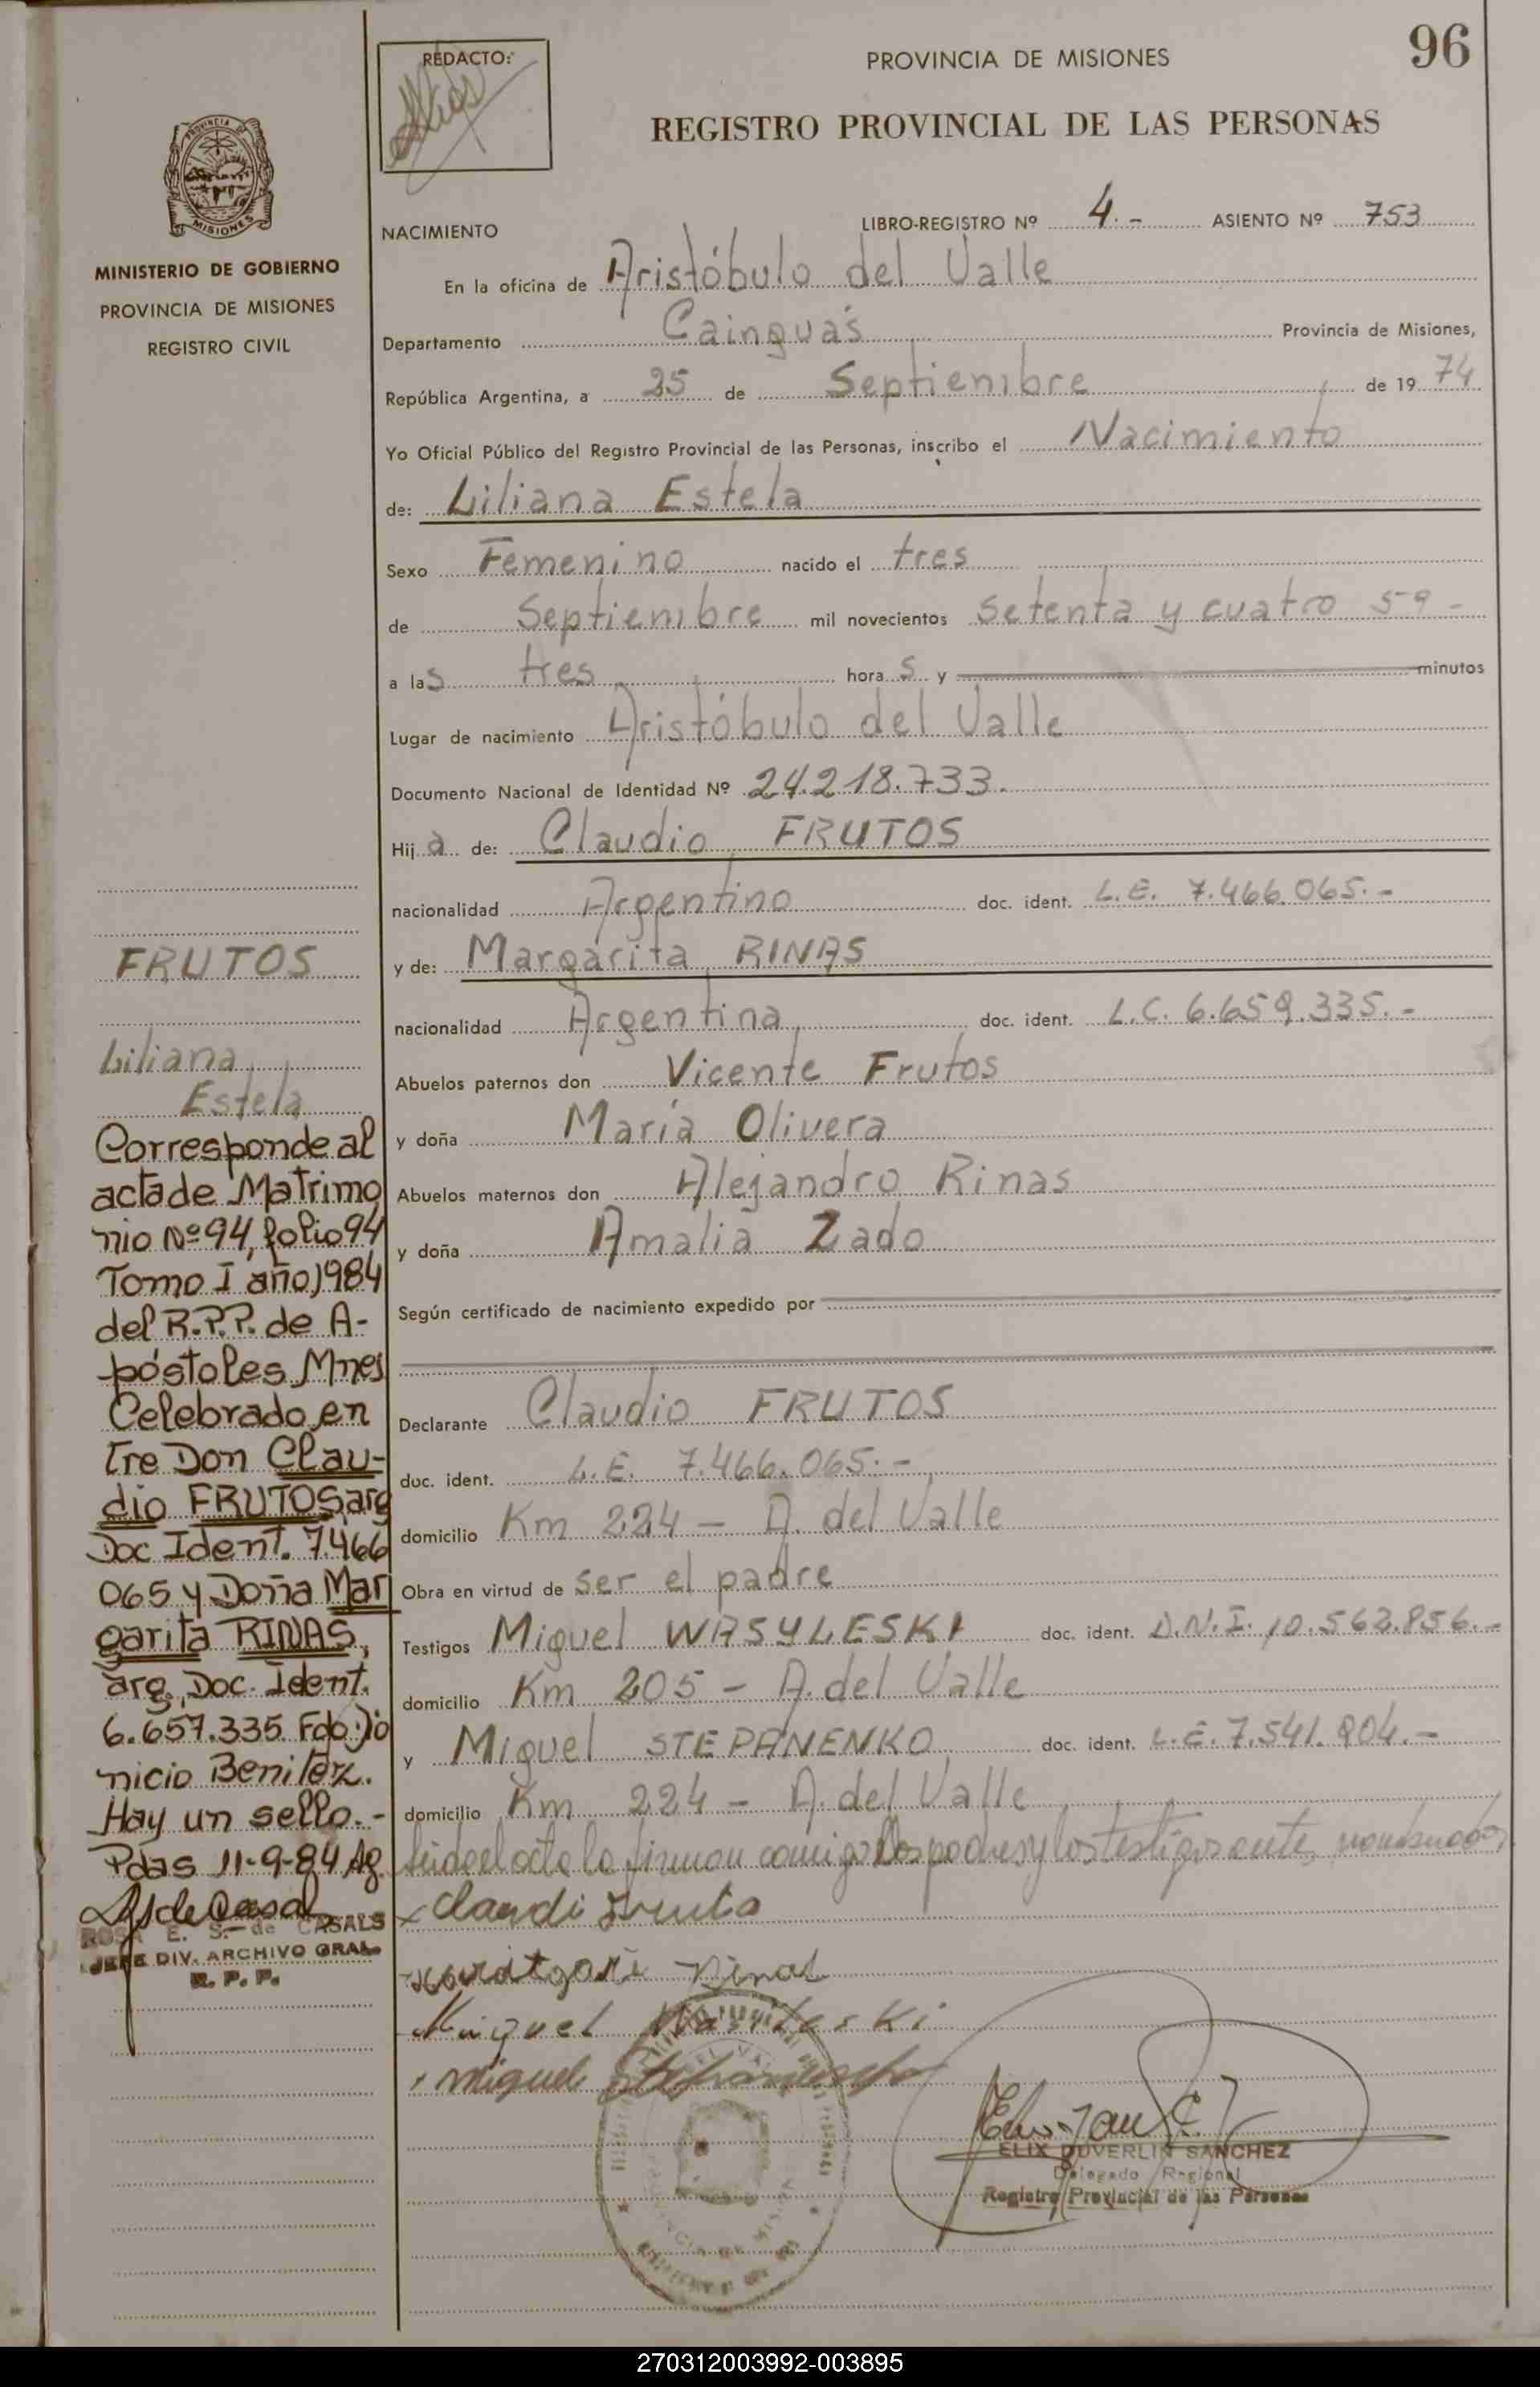 96
REDACTO:
PROVINCIA DE MISIONES
REGISTRO PROVINCIAL DE LAS PERSONAS
PROVINCIA DE
MISIONES
MINISTERIO DE GOBIERNO
PROVINCIA DE MISIONES
REGISTRO CIVIL
NACIMIENTO
LIBRO-REGISTRO Nº 4.- ASIENTO Nº 753
En la oficina de Aristóbulo del Valle
Departamento Cainguás Provincia de Misiones,
República Argentina, a 25 de Septiembre de 19 74
Yo Oficial Público del Registro Provincial de las Personas, inscribo el Nacimiento
de: Liliana Estela
Sexo Femenino nacido el tres
de Septiembre mil novecientos setenta y cuatro 59-
a las tres horas y minutos
Lugar de nacimiento Aristóbulo del Valle
Documento Nacional de Identidad Nº 24.218.733.
Hija de: Claudio FRUTOS
nacionalidad Argentino doc. ident. L.E. 7.466.065.-
y de: Margarita RINAS
nacionalidad Argentina doc. ident. L.C. 6.659.335.-
Abuelos paternos don Vicente Frutos
y doña María Olivera
Abuelos maternos don Alejandro Rinas
y doña Amalia Zado
Según certificado de nacimiento expedido por
Declarante Claudio FRUTOS
doc. ident. L.E. 7.466.065.-
domicilio Km 224 - A. del Valle
Obra en virtud de ser el padre
Testigos Miguel WASYLESKI doc. ident. D.N.I. 10.563.856.-
domicilio Km 205 - A. del Valle
y Miguel STEPANENKO doc. ident. L.E. 7.541.904.-
domicilio Km 224 - A. del Valle
Leido el acta la firman conmigo los padres y los testigos antes nombrados
Claudi Fruto
Rinas
Miguel Wasileski
Miguel
ELIX DUVERLIN SANCHEZ
Delegado Regional
Registro Provincial de las Personas
FRUTOS
Liliana
Estela
Corresponde al
acta de Matrimo
nio Nº 94, folio 94
Tomo I año 1984
del R.P.P. de A-
póstoles Mnes
Celebrado en
tre Don Clau-
dio FRUTOS, arg
Doc Ident. 7.466
065 y Doña Mar
garita RINAS,
arg. Doc. Ident.
6.657.335. Fdo: Dio
nicio Benitez.
Hay un sello.-
Pdas 11-9-84 Ag.
ROSA E. S. de CASALS
JEFE DIV. ARCHIVO GRAL.
R. P. P.
270312003992-003895